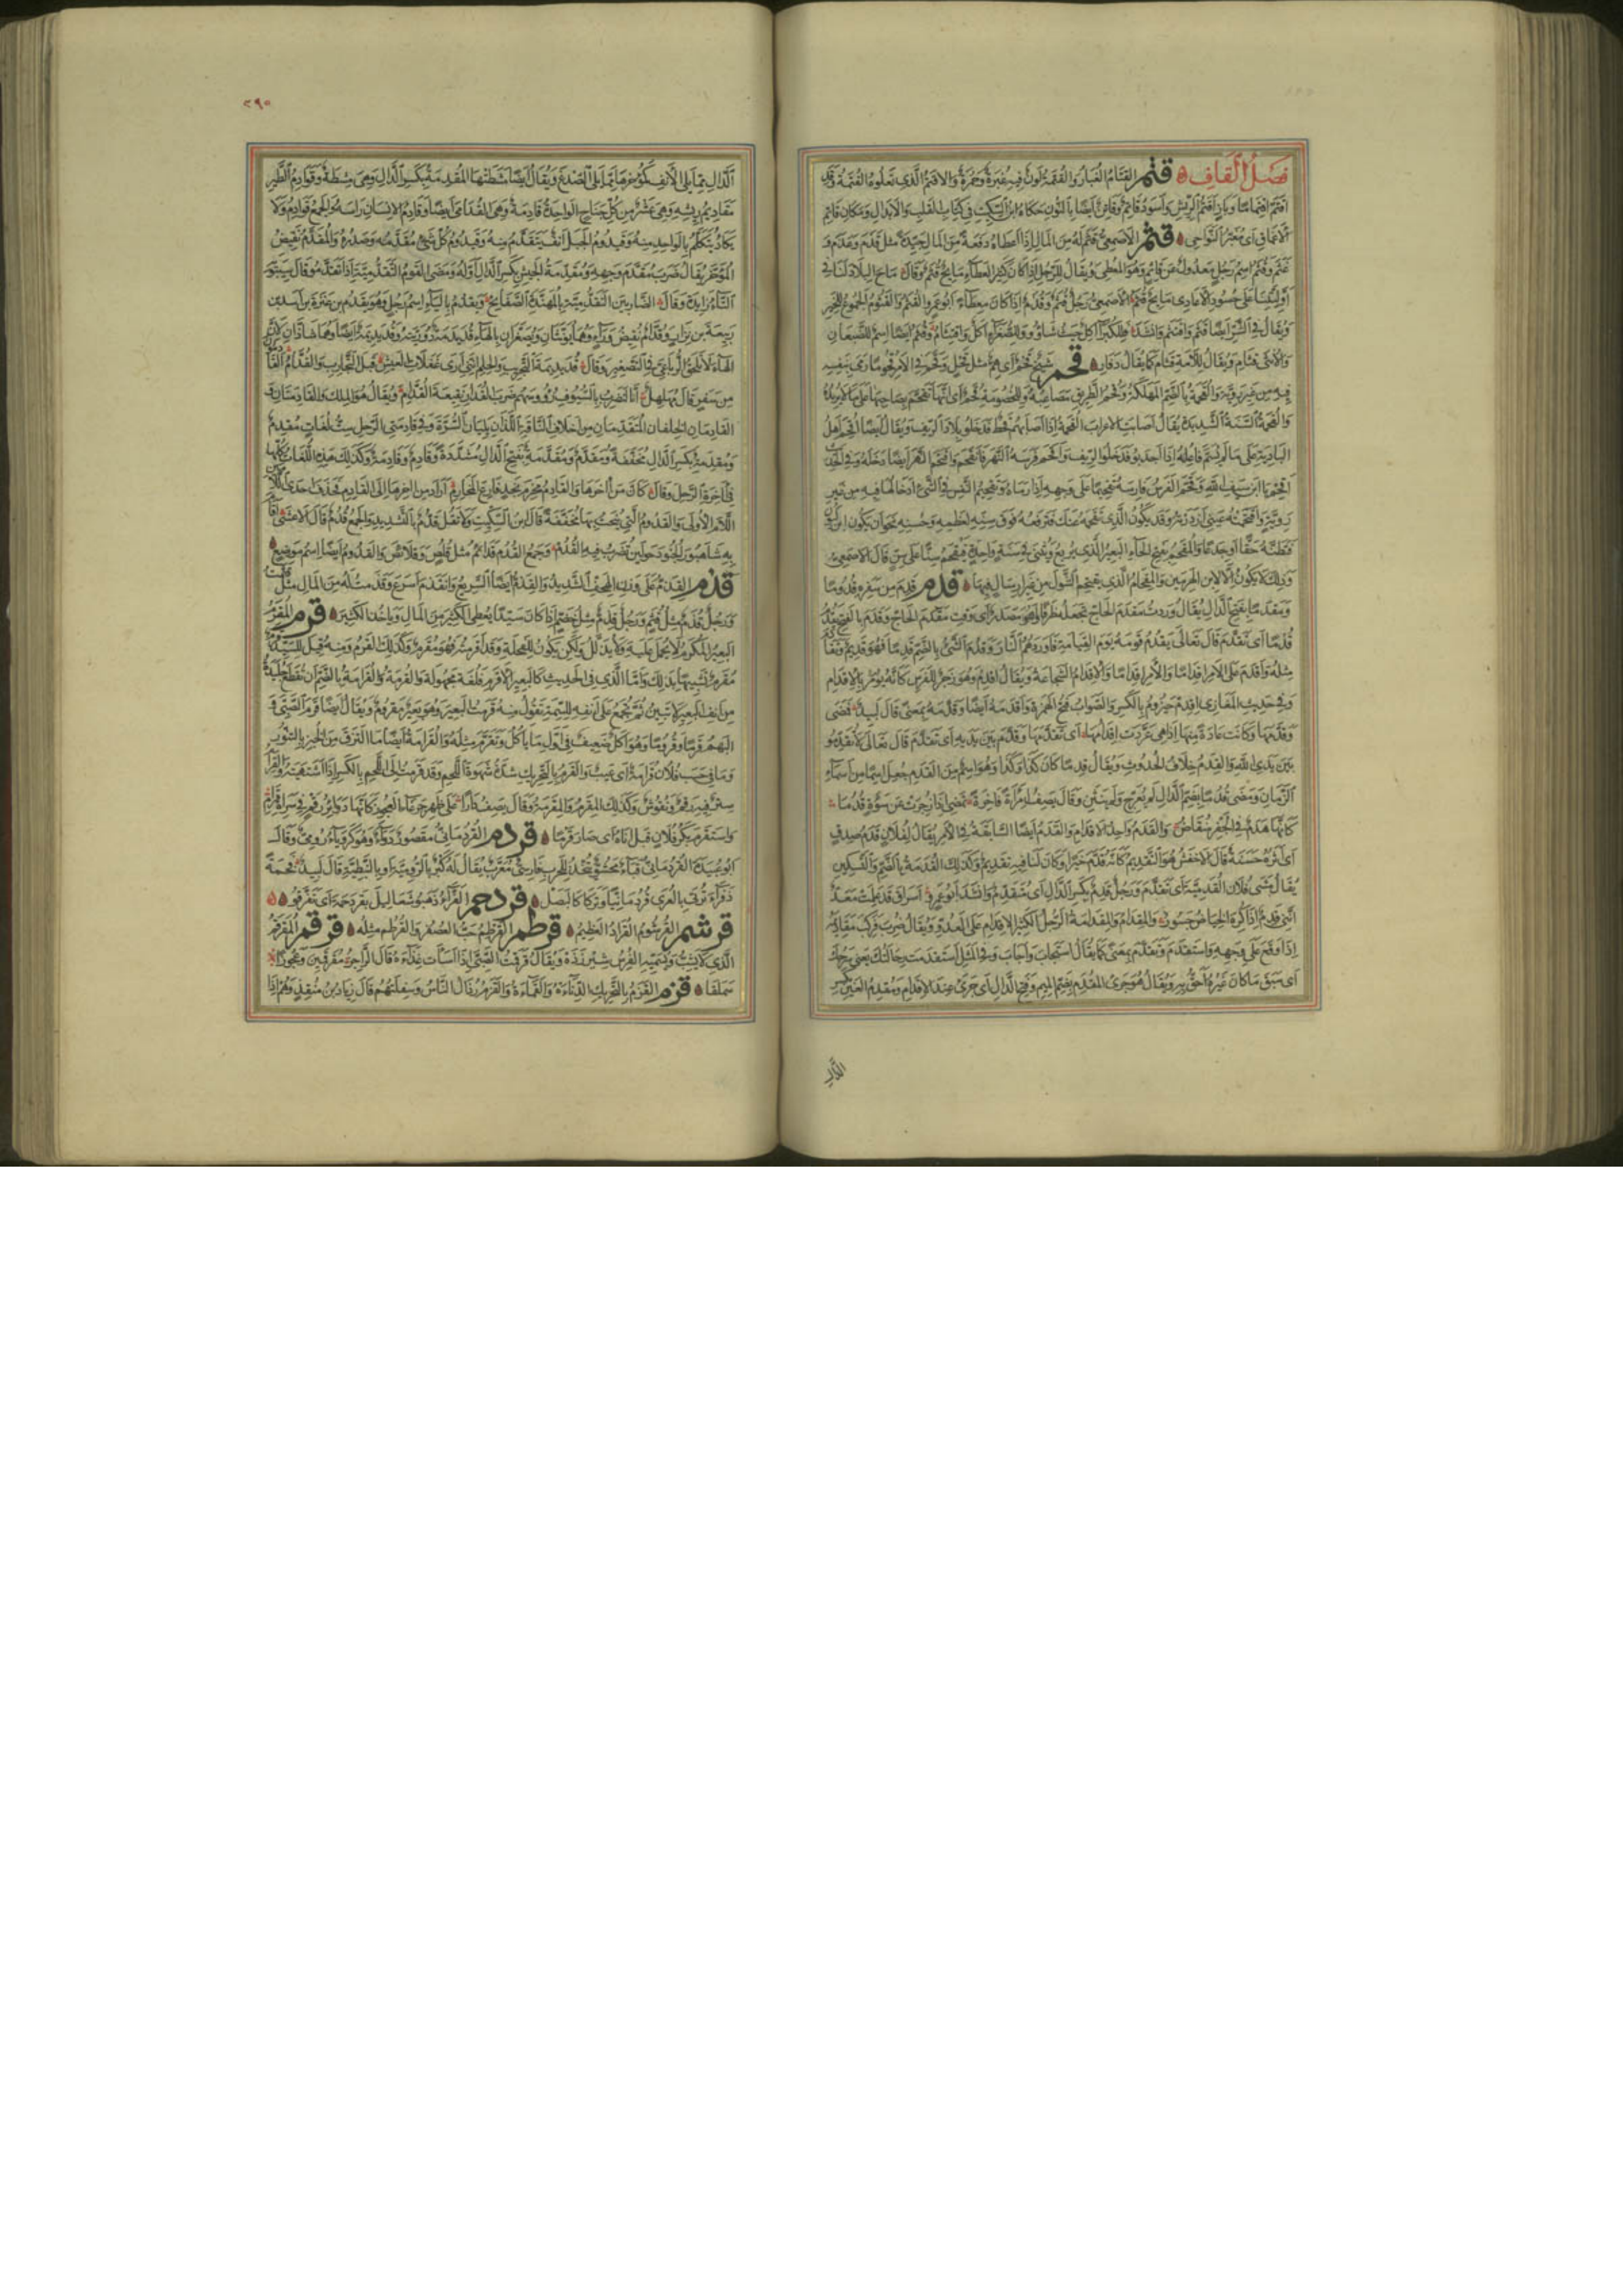 فصل القاف قتم القتام الغبار والقتمة لون فيه غبرة وحمرة والاقتم الذي تعلوه القتمة وقد
اقتم اقتماما وباز اقتم الريش واسود قاتم وقاتن ايضا بالنون حكاه ابن السكيت في كتاب القلب والابدال ومكان قاتم
الاعماق اى مغبر النواحى قثم الاصمعى قثم له من المال اذا اعطاه دفعة من المال جيدة مثل قذم وغذم و
غثم وقثم اسم رجل معدول عن قاثم وهو المعطى ويقال للرجل اذا كان كثير العطاء مايح قثم وقال ماح البلاد لنا في
اوليتنا على حسود الاعادى مايح قثم الاصمعى رجل قثم وقذم اذا كان معطاء ابو عمرو القثم والقثوم الجموع للخير
ويقال في الشر ايضا قثم واقتثم وانشد فللكبراء اكل حيث شاؤوا وللصغراء اكل واقتثام وقثم ايضا اسم للضبعان
والانثى قثام ويقال للامة قثام كما يقال دفار قحم شيخ قحم اى هم مثل قحل وقحم في الامر قحوما رمى بنفسه
فيه من غير روية والقحمة بالضم المهلكة وقحم الطريق مصاعبه وللخصومة قحم اى انها تقحم بصاحبها على ما لا يريده
والقحمة السنة الشديدة يقال اصابت الاعراب القحمة اذا اصابهم قحط فدخلوا بلاد الريف ويقال ايضا اقحم اهل
البادية على ما لم يسم فاعله اذا اجدبوا فدخلوا الريف واقحم فرسه النهر فانقحم واقتحم النهر ايضا دخله وفي الحديث
اقحم يا ابن سيف الله وقحم الفرس فارسه تقحيما على وجهه اذا رماه وتقحيم النفس في الشئ ادخالها فيه من غير
روية واقتحمته عينى ازدرته وقد يكون الذي تقحمه عينك فترفعه فوق سنه لعظمه وحسنه نحو ان يكون ابن لبون
فتظنه حقا او جذعا والمقحم بفتح الحاء البعير الذي يربع ويثنى في سنة واحدة فيقتحم سنا على سن قال الاصمعى
وذلك لا يكون الا لابن الهرمين والمقحام الذي يقتحم الشول من غير ارسال فيها قدم قدم من سفره قدوما
ومقدما بفتح الدال يقال وردت مقدم الحاج تجعله ظرفا وهو مصدر اى وقت مقدم الحاج وقدم بالفتح يقدم
قدما اى تقدم قال تعالى يقدم قومه يوم القيامة فاوردهم النار وقدم الشئ بالضم قدما فهو قديم وتقادم
مثله واقدم على الامر اقداما والاقدام الشجاعة ويقال اقدم وهو زجر للفرس كانه يؤمر بالاقدام
وفي حديث المغازى اقدم حيزوم بالكسر والصواب فتح الهمزة واقدمه ايضا وقدمه بمعنى قال لبيد فمضى
وقدمها وكانت عادة منها اذا هى عردت اقدامها اى تقدمها وقدم بين يديه اى تقدم قال تعالى لا تقدموا
بين يدى الله والقدم خلاف الحدوث ويقال قدما كان كذا وكذا وهو اسم من القدم جعل اسما من اسماء
الزمان ومضى قدما بضم الدال لم يعرج ولم ينثن وقال يصف امرأة فاجرة تمضى اذا زجرت عن سوءة قدما
كانها هدم في الجفر منقاض والقدم واحد الاقدام والقدم ايضا السابقة في الامر يقال لفلان قدم صدق
اى اثرة حسنة قال الاخفش هو التقديم كانه قدم خيرا وكان لنا فيه تقديم وكذلك القدمة بالضم والتسكين
يقال مشى فلان القدمية اى تقدم ورجل قدم بكسر الدال اى متقدم وانشد ابو عمرو اسراق قد علمت معد
اننى قدم اذا كره الحياض جسور والمقدام والمقدامة الرجل الكثير الاقدام على العدو ويقال ضرب فركب مقاديمه
اذا وقع على وجهه واستقدم وتقدم بمعنى كما يقال استجاب واجاب وفي المثل استقدمت رحالتك يعنى سرجك
اى سبق ما كان غيره احق به ويقال هو جرئ المقدم بضم الميم وفتح الدال اى جرئ عند الاقدام ومقدم العين بكسر
الدال
٢٩٥
الدال مما يلى الانف كمؤخرها مما يلى الصدغ ويقال ايضا مشطتها المقدمة بكسر الدال وهى مشطة وقوادم الطير
مقاديم ريشه وهى عشر من كل جناح الواحدة قادمة وهى القدامى ايضا وقادم الانسان راسه والجمع قوادم ولا
يكاد يتكلم بالواحد منه وقيدوم الجبل انف يتقدم منه وقيدوم كل شئ مقدمه وصدره والمقدم نقيض
المؤخر يقال ضرب مقدم وجهه ومقدمة الجيش بكسر الدال اوله ومضى القوم التقدمية اذا تقدموا قال سيبويه
التاء زايدة وقال الضاربين التقدمية بالمهندة الصفايح ويقدم بالياء اسم رجل وهو يقدم بن عنزة بن اسد بن
ربيعة بن نزار وقدام نقيض وراء وهما يونثان ويصغران بالهاء قديديمة وورية وقديديمة ايضا وهما شاذان لان
الهاء لا تلحق الرباعى في التصغير وقال قديديمة التجريب والحلم اننى ارى غفلات العيش قبل التجارب والقدام القادمون
من سفر قال مهلهل انا لنضرب بالسيوف رؤوسهم ضرب القدار نقيعة القدام ويقال هو الملك والقادمتان و
القادمان الخلفان المتقدمان من اخلاف الناقة اللذان يليان السرة وفي قادمتى الرحل ست لغات مقدم
ومقدمة بكسر الدال مخففة ومقدم ومقدمة بفتح الدال مشددة وقادم وقادمة وكذلك هذه اللغات كلها
في اخرة الرحل وقال كان من اخرها والقادم مخرم نجد فارع المخارم اراد من اخرها الى القادم فحذف احدى اللامين
اللام الاولى والقدوم التى ينحت بها مخففة قال ابن السكيت ولا تقل قدوم بالتشديد والجمع قدم قال الاعشى اقام
به شاهبور الجنود حولين تضرب فيه القدم وجمع القدم قدائم مثل قلص وقلائص والقدوم ايضا اسم موضع
قذم القذم على وزن الهجف الشديد والقذم ايضا السريع وانقذم اسرع وقذمت له من المال مثل قثمت
ورجل قذم مثل قثم ورجل قذم مثل خضم اذا كان سيدا يعطى الكثير من المال وياخذ الكثير قرم المقرم
البعير المكرم لا يحمل عليه ولا يذلل ولكن يكون للفحلة وقد اقرمته فهو مقرم وكذلك القرم ومنه قيل للسيد
مقرم تشبيها بذلك واما الذي في الحديث كالبعير الاقرم فلغة مجهولة والقرمة والقرامة بالضم ان تقطع جليدة
من انف البعير لا تبين ثم تجمع على انفه للسمة تقول منه قرمت البعير وهو بعير مقروم ويقال ايضا قرم الصبى و
البهم قرما وقروما وهو اكل ضعيف في اول ما ياكل وتقرم مثله والقرامة ايضا ما التزق من الخبز بالتنور
وما في حسب فلان قرامة اى عيب والقرم بالتحريك شدة شهوة اللحم وقد قرمت الى اللحم بالكسر اذا اشتهيته والقرام
ستر فيه رقم ونقوش وكذلك المقرم والمقرمة وقال يصف دارا على ظهر جرعاء العجوز كانها دوائر رقم في سراة قرام
واستقرم بكر فلان قبل اناه اى صار قرما قردم القردمانى مقصور دواء وهو كرويا رومى وقال
ابو عبيدة القردمانى قباء محشو يتخذ للحرب فارسى معرب يقال له كبر بالرومية او بالنبطية قال لبيد فخمة
ذفراء ترتى بالعرى قردمانيا وتركا كالبصل قردحم الفراء ذهبوا شماليل بقردحمة اى تفرقوا
قرشم القرشوم القراد العظيم قرطم القرطم حب العصفر والقرطم مثله قرقم المقرقم
الذي لا يشب وتسميه الفرس شيرزده ويقال قرقمت الصبى اذا اسأت غذاءه قال الراجز مقرقمين وعجوزا
سملقا قزم القزم بالتحريك الدناءة والقماءة والقزم رذال الناس وسفلتهم قال زياد بن منقذ وهم اذا